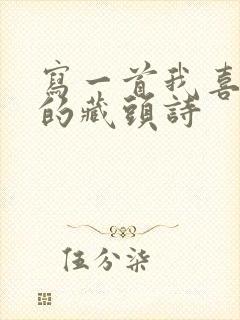 寫一首我喜
的藏頭詩
伍分柒